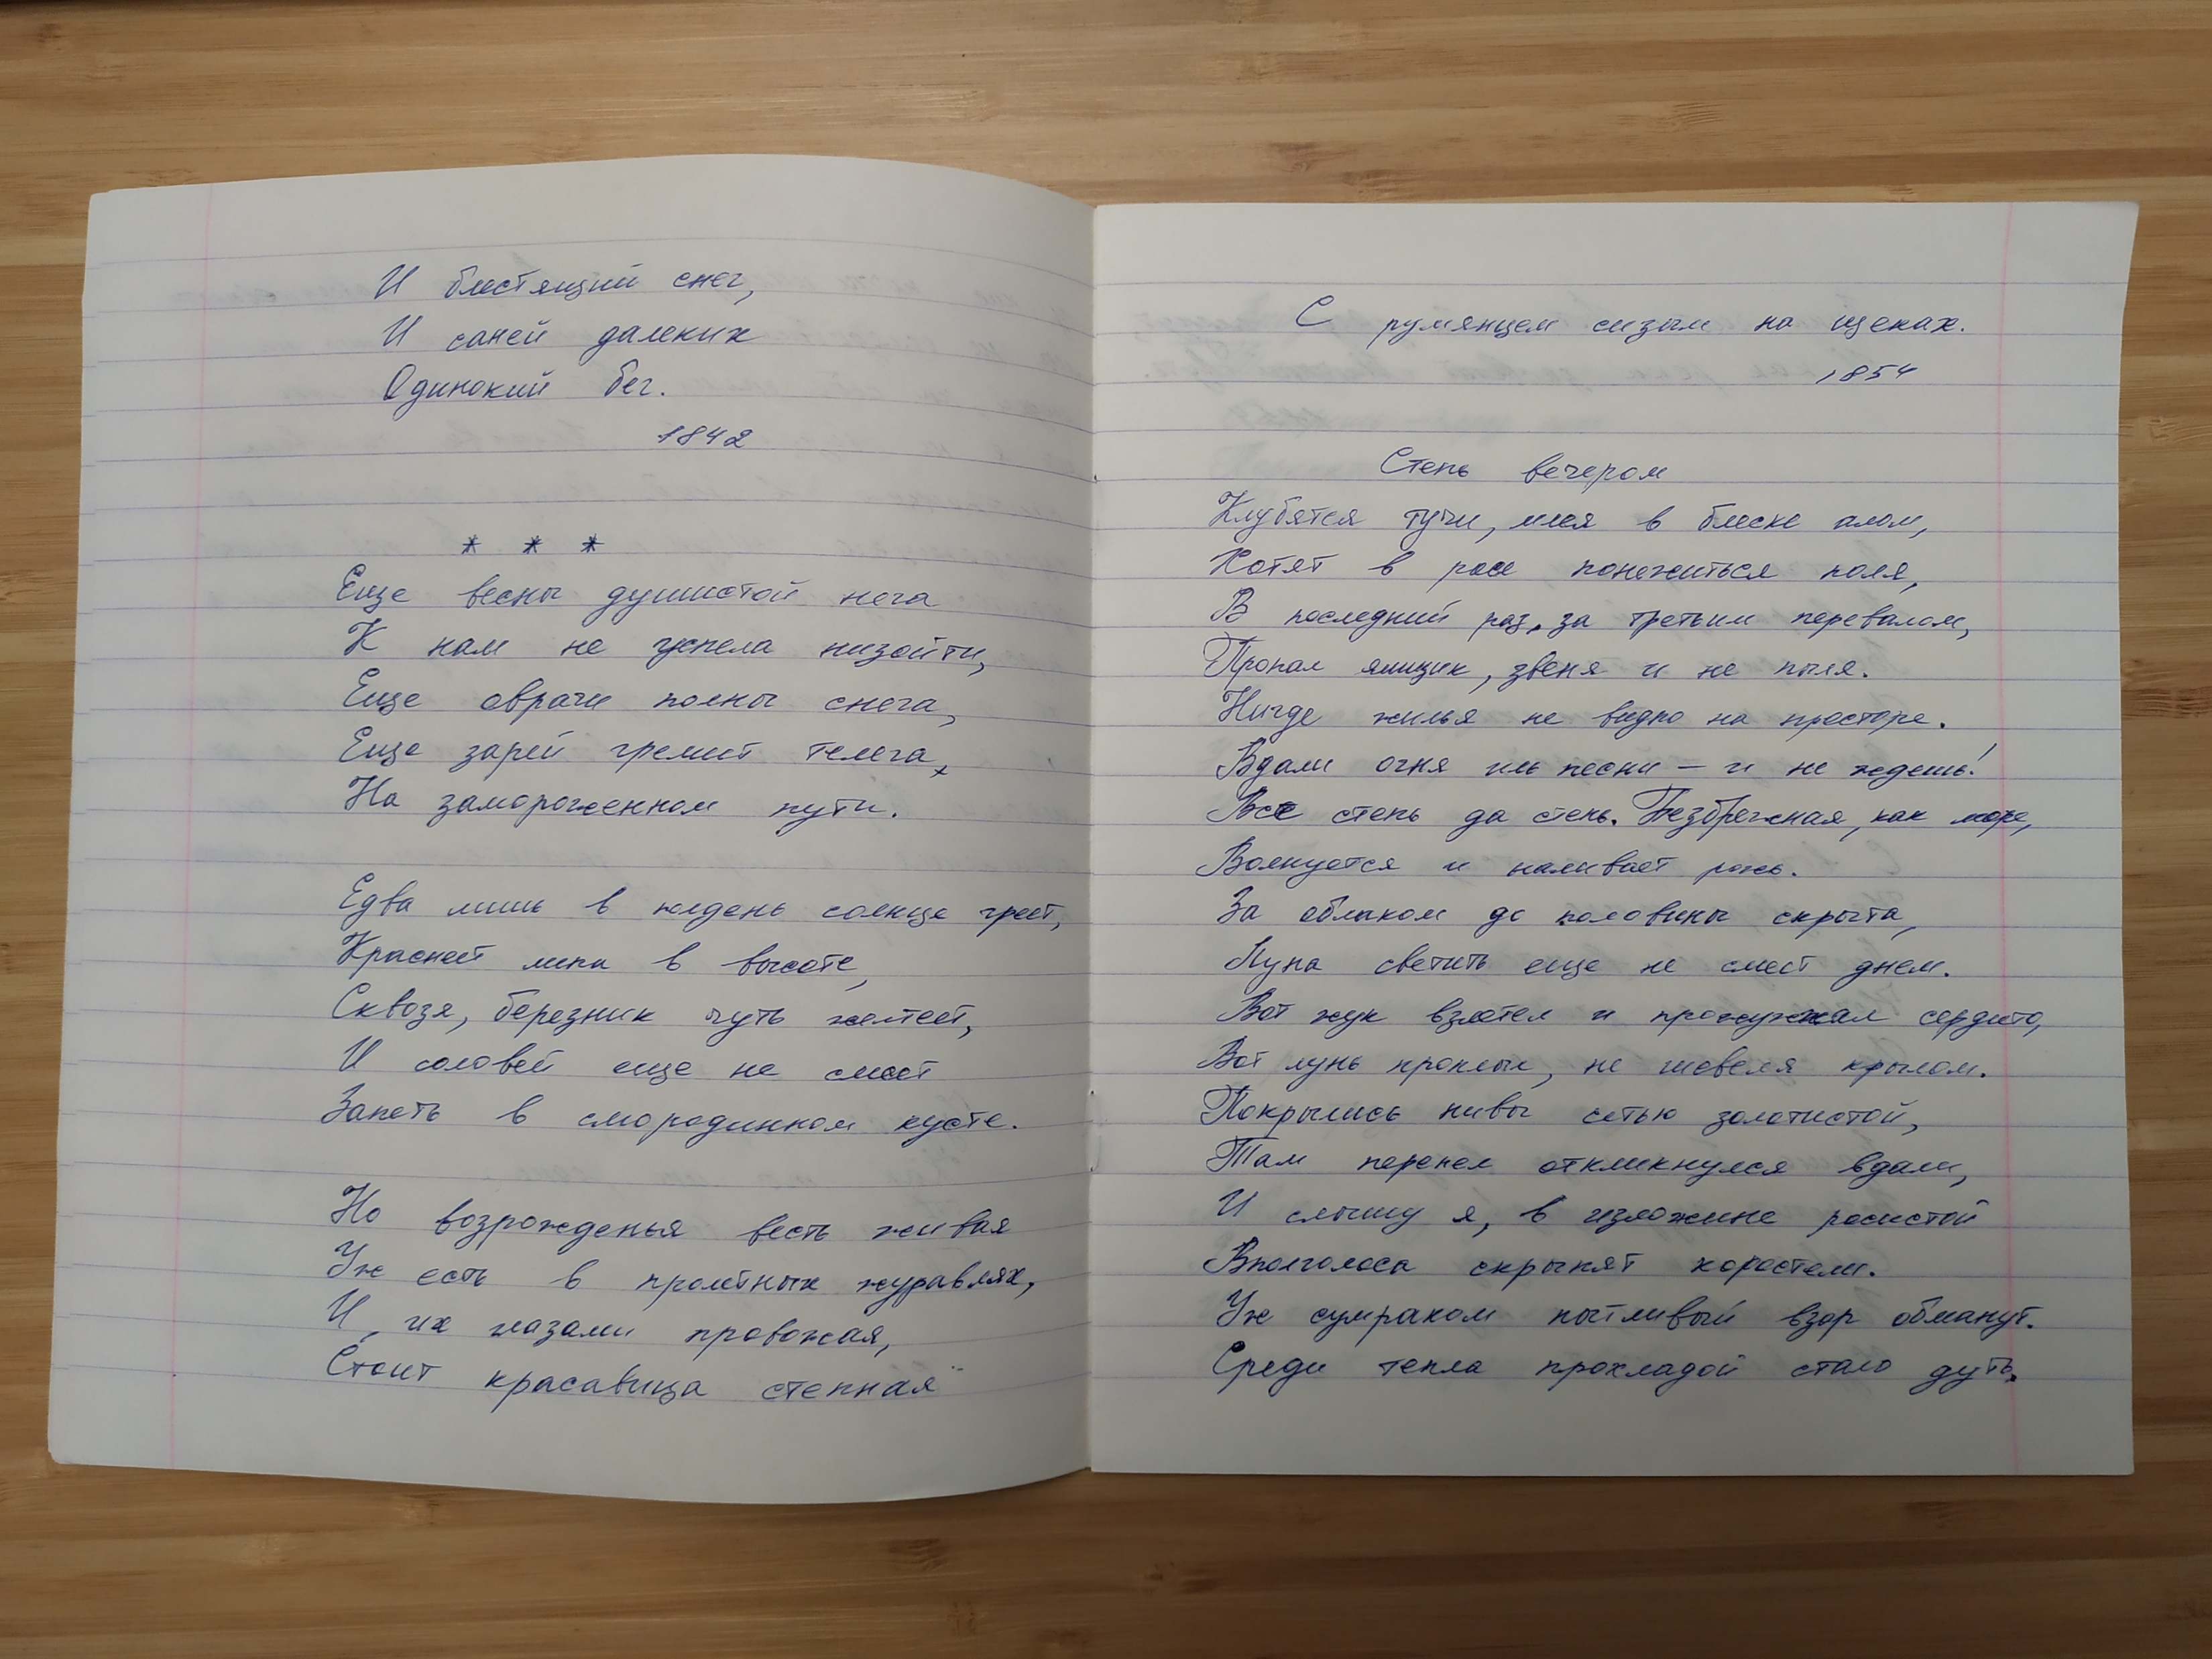 И блестящий снег,
И саней далеких
Одинокий бег.
1842
* * *
Еще весны душистой нега
К нам не успела низойти,
Еще овраги полны снега,
Еще зарей гремит телега,
На замороженном пути.
Едва лишь в полдень солнце греет,
Краснеет липа в высоте,
Сквозя, березник чуть желтеет,
И соловей еще не смеет
Запеть в смородинном кусте.
Но возрожденья весть живая
Уж есть в пролетных журавлях,
И, их глазами провожая,
Стоит красавица степная
С румянцем сизым на щеках.
1854
Степь вечером
Клубятся тучи, млея в блеске алом,
Хотят в росе понежиться поля,
В последний раз, за третьим перевалом,
Пропал ямщик, звеня и не пыля.
Нигде жилья не видно на просторе.
Вдали огня иль песни – и не ждешь!
Все степь да степь. Безбрежная, как море,
Волнуется и наливает рожь.
За облаком до половины скрыта,
Луна светить еще не смеет днем.
Вот жук взлетел и прожужжал сердито,
Вот лунь проплыл, не шевеля крылом.
Покрылись нивы сетью золотистой,
Там перепел откликнулся вдали,
И слышу я, в изложине росистой
Вполголоса скрыпят коростели.
Уж сумраком пытливый взор обманут.
Среди тепла прохладой стало дуть.